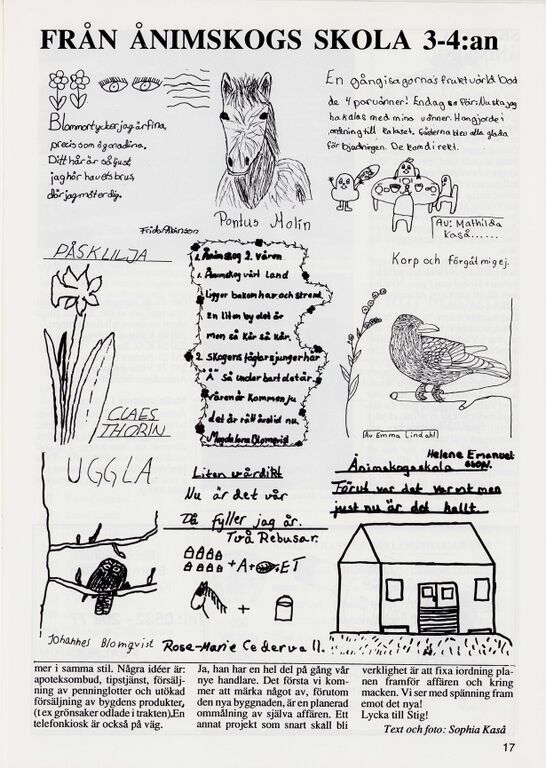 FRÅN ÅNIMSKOGS SKOLA 3-4:an
Blommor tycker jag är fina,
precis som ögonadina.
Ditt hår är så ljust,
jag hör havets brus
där jag möter dig.
Frida Albinson
Pontus Molin
En gång i sagornas fruktvärld bod
de 4 porvänner! Endag sa Pär: Nu ska jag
ha kalas med mina vänner. Han gjorde i
ordning till kalaset. Gästerna blev alla glada
för bjudningen. De kom direkt.
Av: Mathilda
Kaså......
PÅSKLILJA
CLAES
THORIN
1. Ånimskog 2. våren
1. Ånimskog vårt land
ligger bakom hav och strand
En liten by det är
men så kär så kär.
2. Skogens fåglar sjunger här
"Å" Så underbart det är.
Våren är kommen ju
det är rätt årstid nu.
Magdalena Blomqvist
Korp och förgätmigej.
Av Emma Lindahl
UGGLA
Johannes Blomqvist
Liten vårdikt
Nu är det vår
Då fyller jag år.
Två Rebusar.
+A+ ET
+
Rose-Marie Cedervall.
Helene Emanuel
Ånimskogsskola
Förut var det varmt men
just nu är det kallt.
mer i samma stil. Några idéer är:
apoteksombud, tipstjänst, försälj-
ning av penninglotter och utökad
försäljning av bygdens produkter,
(t ex grönsaker odlade i trakten).En
telefonkiosk är också på väg.
Ja, han har en hel del på gång vår
nye handlare. Det första vi kom-
mer att märka något av, förutom
den nya byggnaden, är en planerad
ommålning av själva affären. Ett
annat projekt som snart skall bli
verklighet är att fixa iordning pla-
nen framför affären och kring
macken. Vi ser med spänning fram
emot det nya!
Lycka till Stig!
Text och foto: Sophia Kaså
17